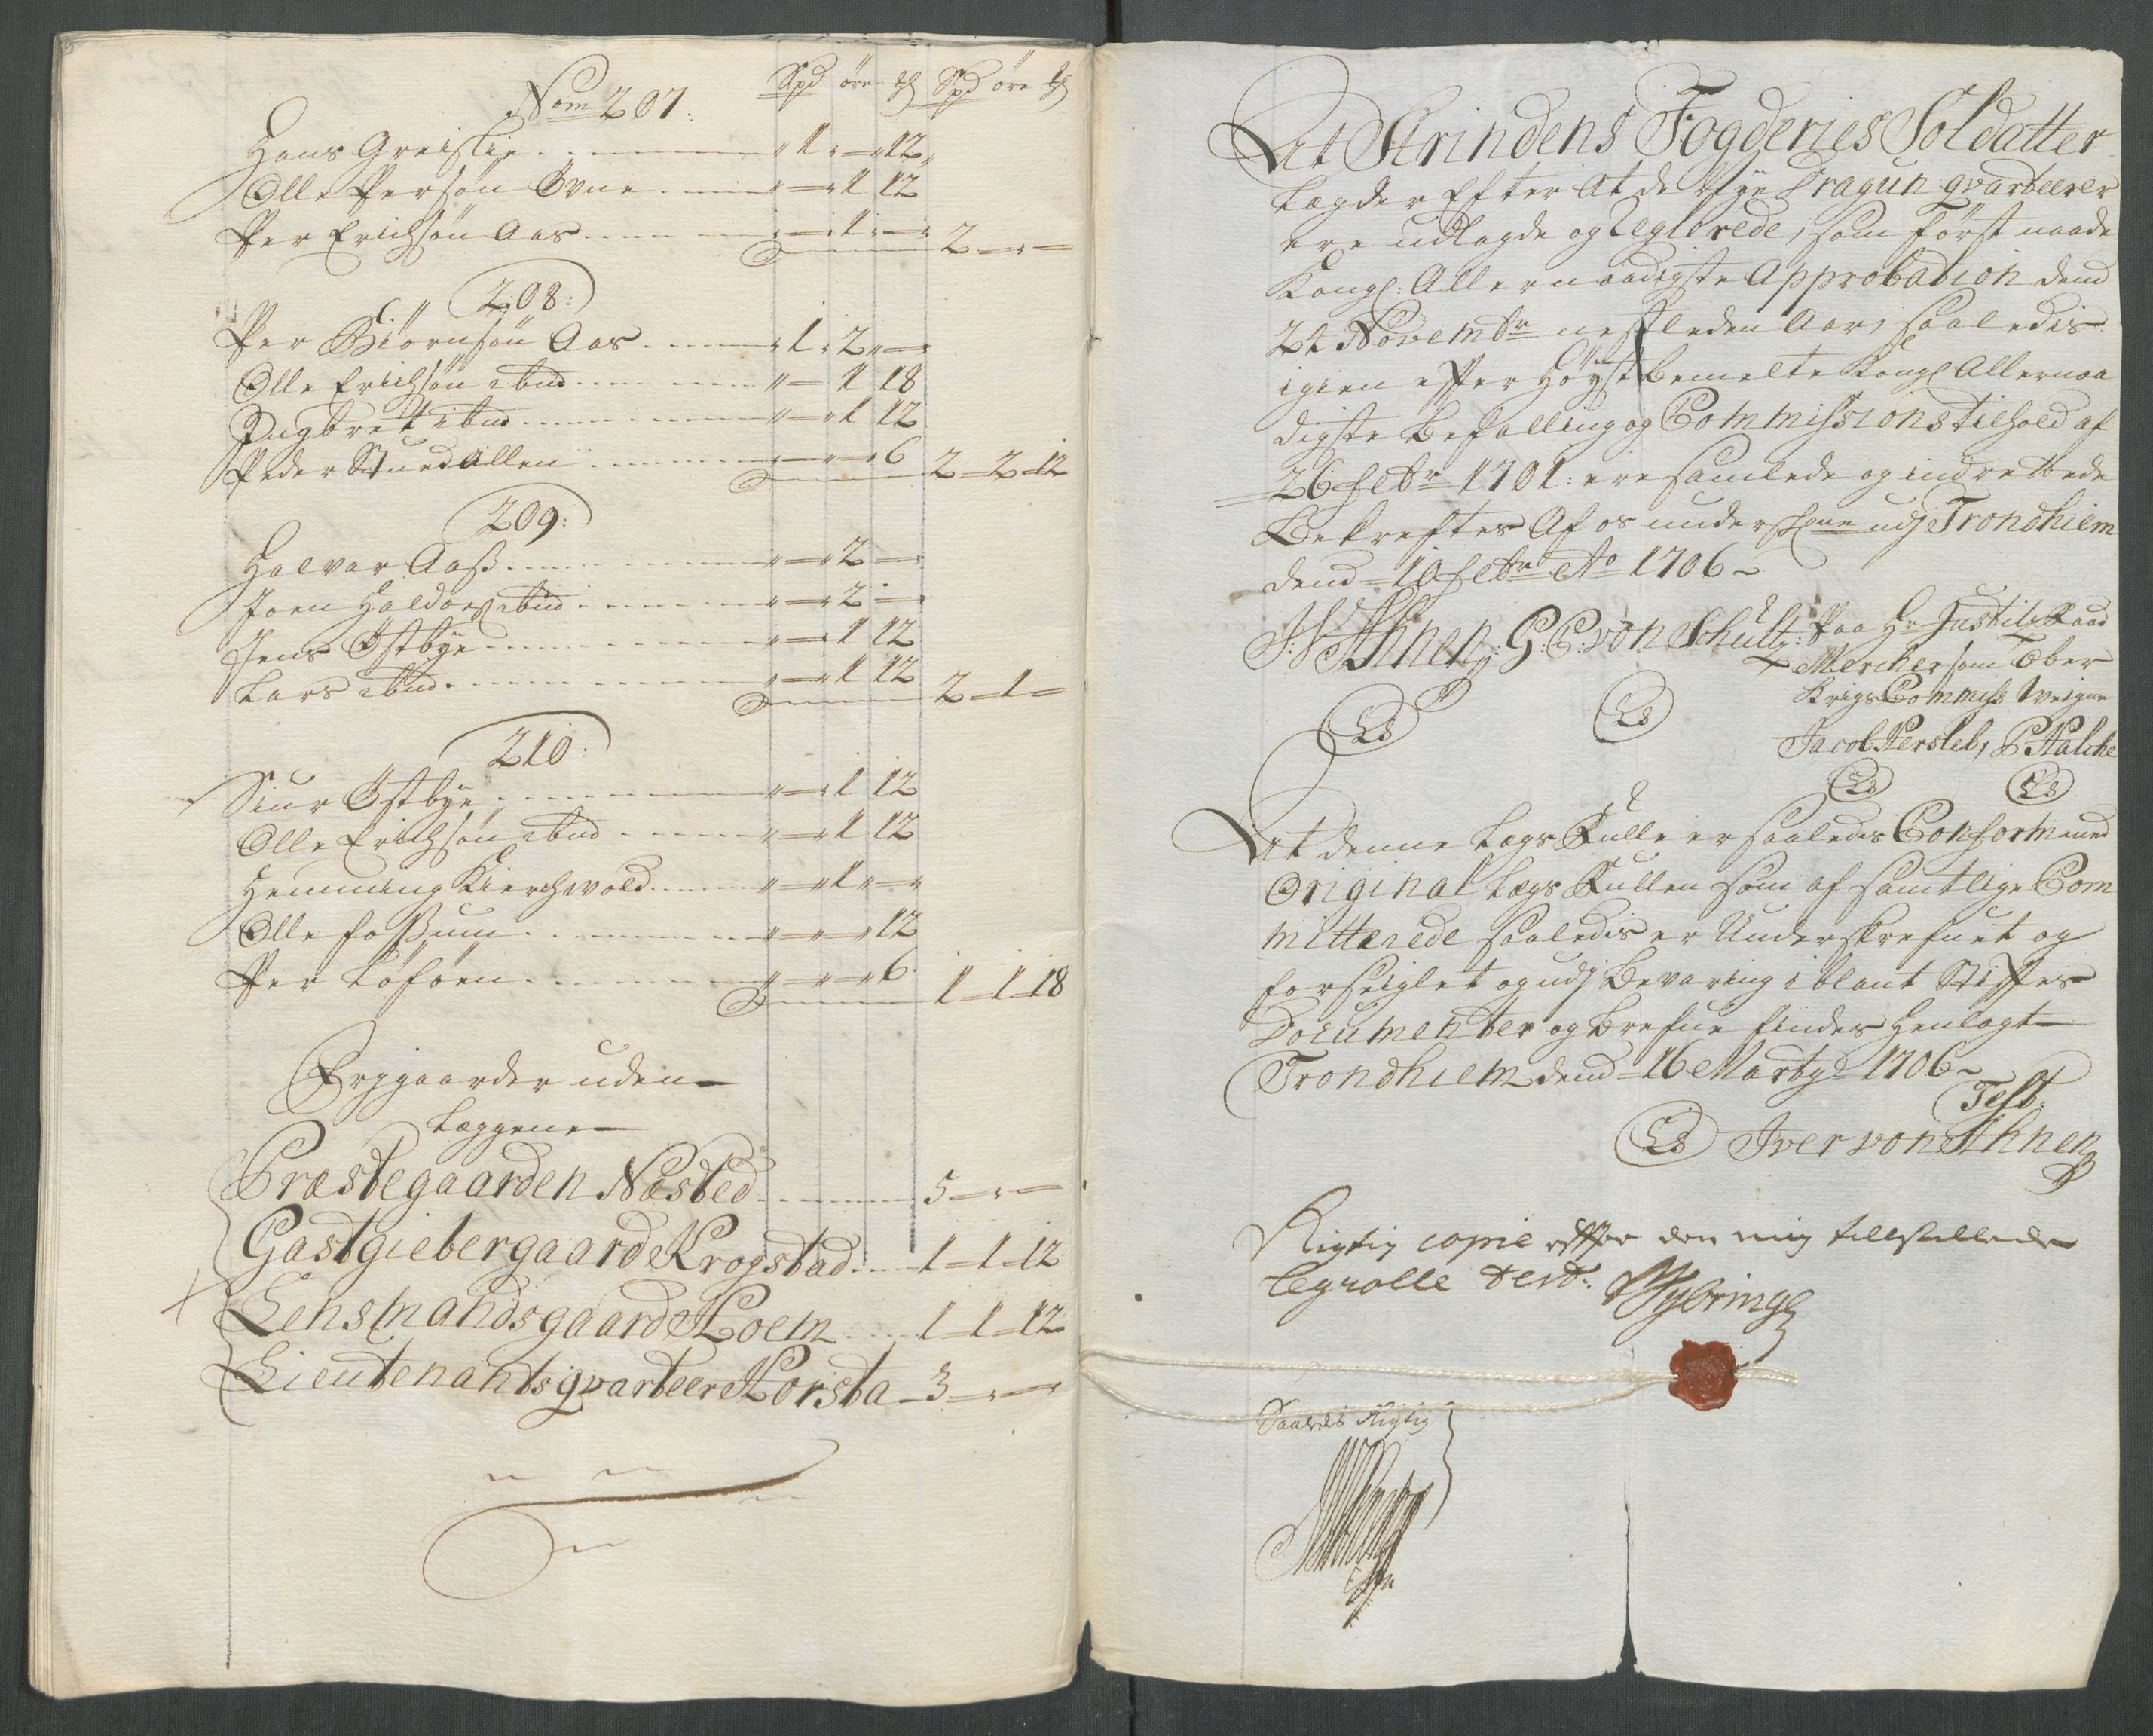 Nom 207. Spd öre ₰ Spd öre ₰
Hans Greislie 1 — 12
Olle Persön Övne — 1 12
Per Erichsön Aas — 1 — 2 — —
208:
Per Biörnsön Aas 1 2 —
Olle Erichsön ibnd — 1 18
Ingbret ibnd — 1 12
Peder Stuedallen — — 6 2 — 2 — 12
209:
Halvar Aass — 2 —
Joen Haldors ibnd — 2 —
Jens Östbye — 1 12
Lars ibnd — 1 12 2 — 1 —
210:
Siur Östbye — 1 12
Olle Erichsön ibnd — 1 12
Henning Kierchvold — 1 —
Olle Fossum — — 12
Per Löföen — — 6 1 — 1 — 18
Erggaarder uden
Læggene
Præstegaarden Næsted 5 — —
Gastgiebergaard Krogstad 1 — 1 — 12
Lensmandsgaard Hoem 1 — 1 — 12
Lieutenants qvarteer Horsta 3 — —
At Strindens Fogderies Soldatter
Lægder Efter at de Nye Dragun qvarteerer
ere udlagde og Reglerede, som först naade
Kongl: Allernaadigste Approbation dend
24 Novembr nestleden Aar, saaledis
igien effter Höystbemelte Kongl Allernaa
digste Befalling og Commissions tilhold af
26 febr 1701: ere samlede og indrettede
Bekreftes Af os underschrne udj Trondhiem
dend 10 febr Ao 1706
I. V. Ahnen: G: C: von Schultz: Paa Hr Justitz Raad
Mercker som Ober
Krigs Commiss Veigne
Ls Ls Jacob Hersleb, P Halche
Ls Ls
At denne Lægs Rulle er saaledes Conform med
Original Lægs Rullen som af samtlige Com
mitterede saaledis er Underskrefuet og
forseiglet og udj Bevaring iblant Stiftes
Documenter og Brefue findes Henlagt
Trondhiem dend 16 Marty 1706
Test.
Ls Iver von Ahnen
Rigtig copie effter den mig tillstillede
legrolle test.
Saaledis Rigtig